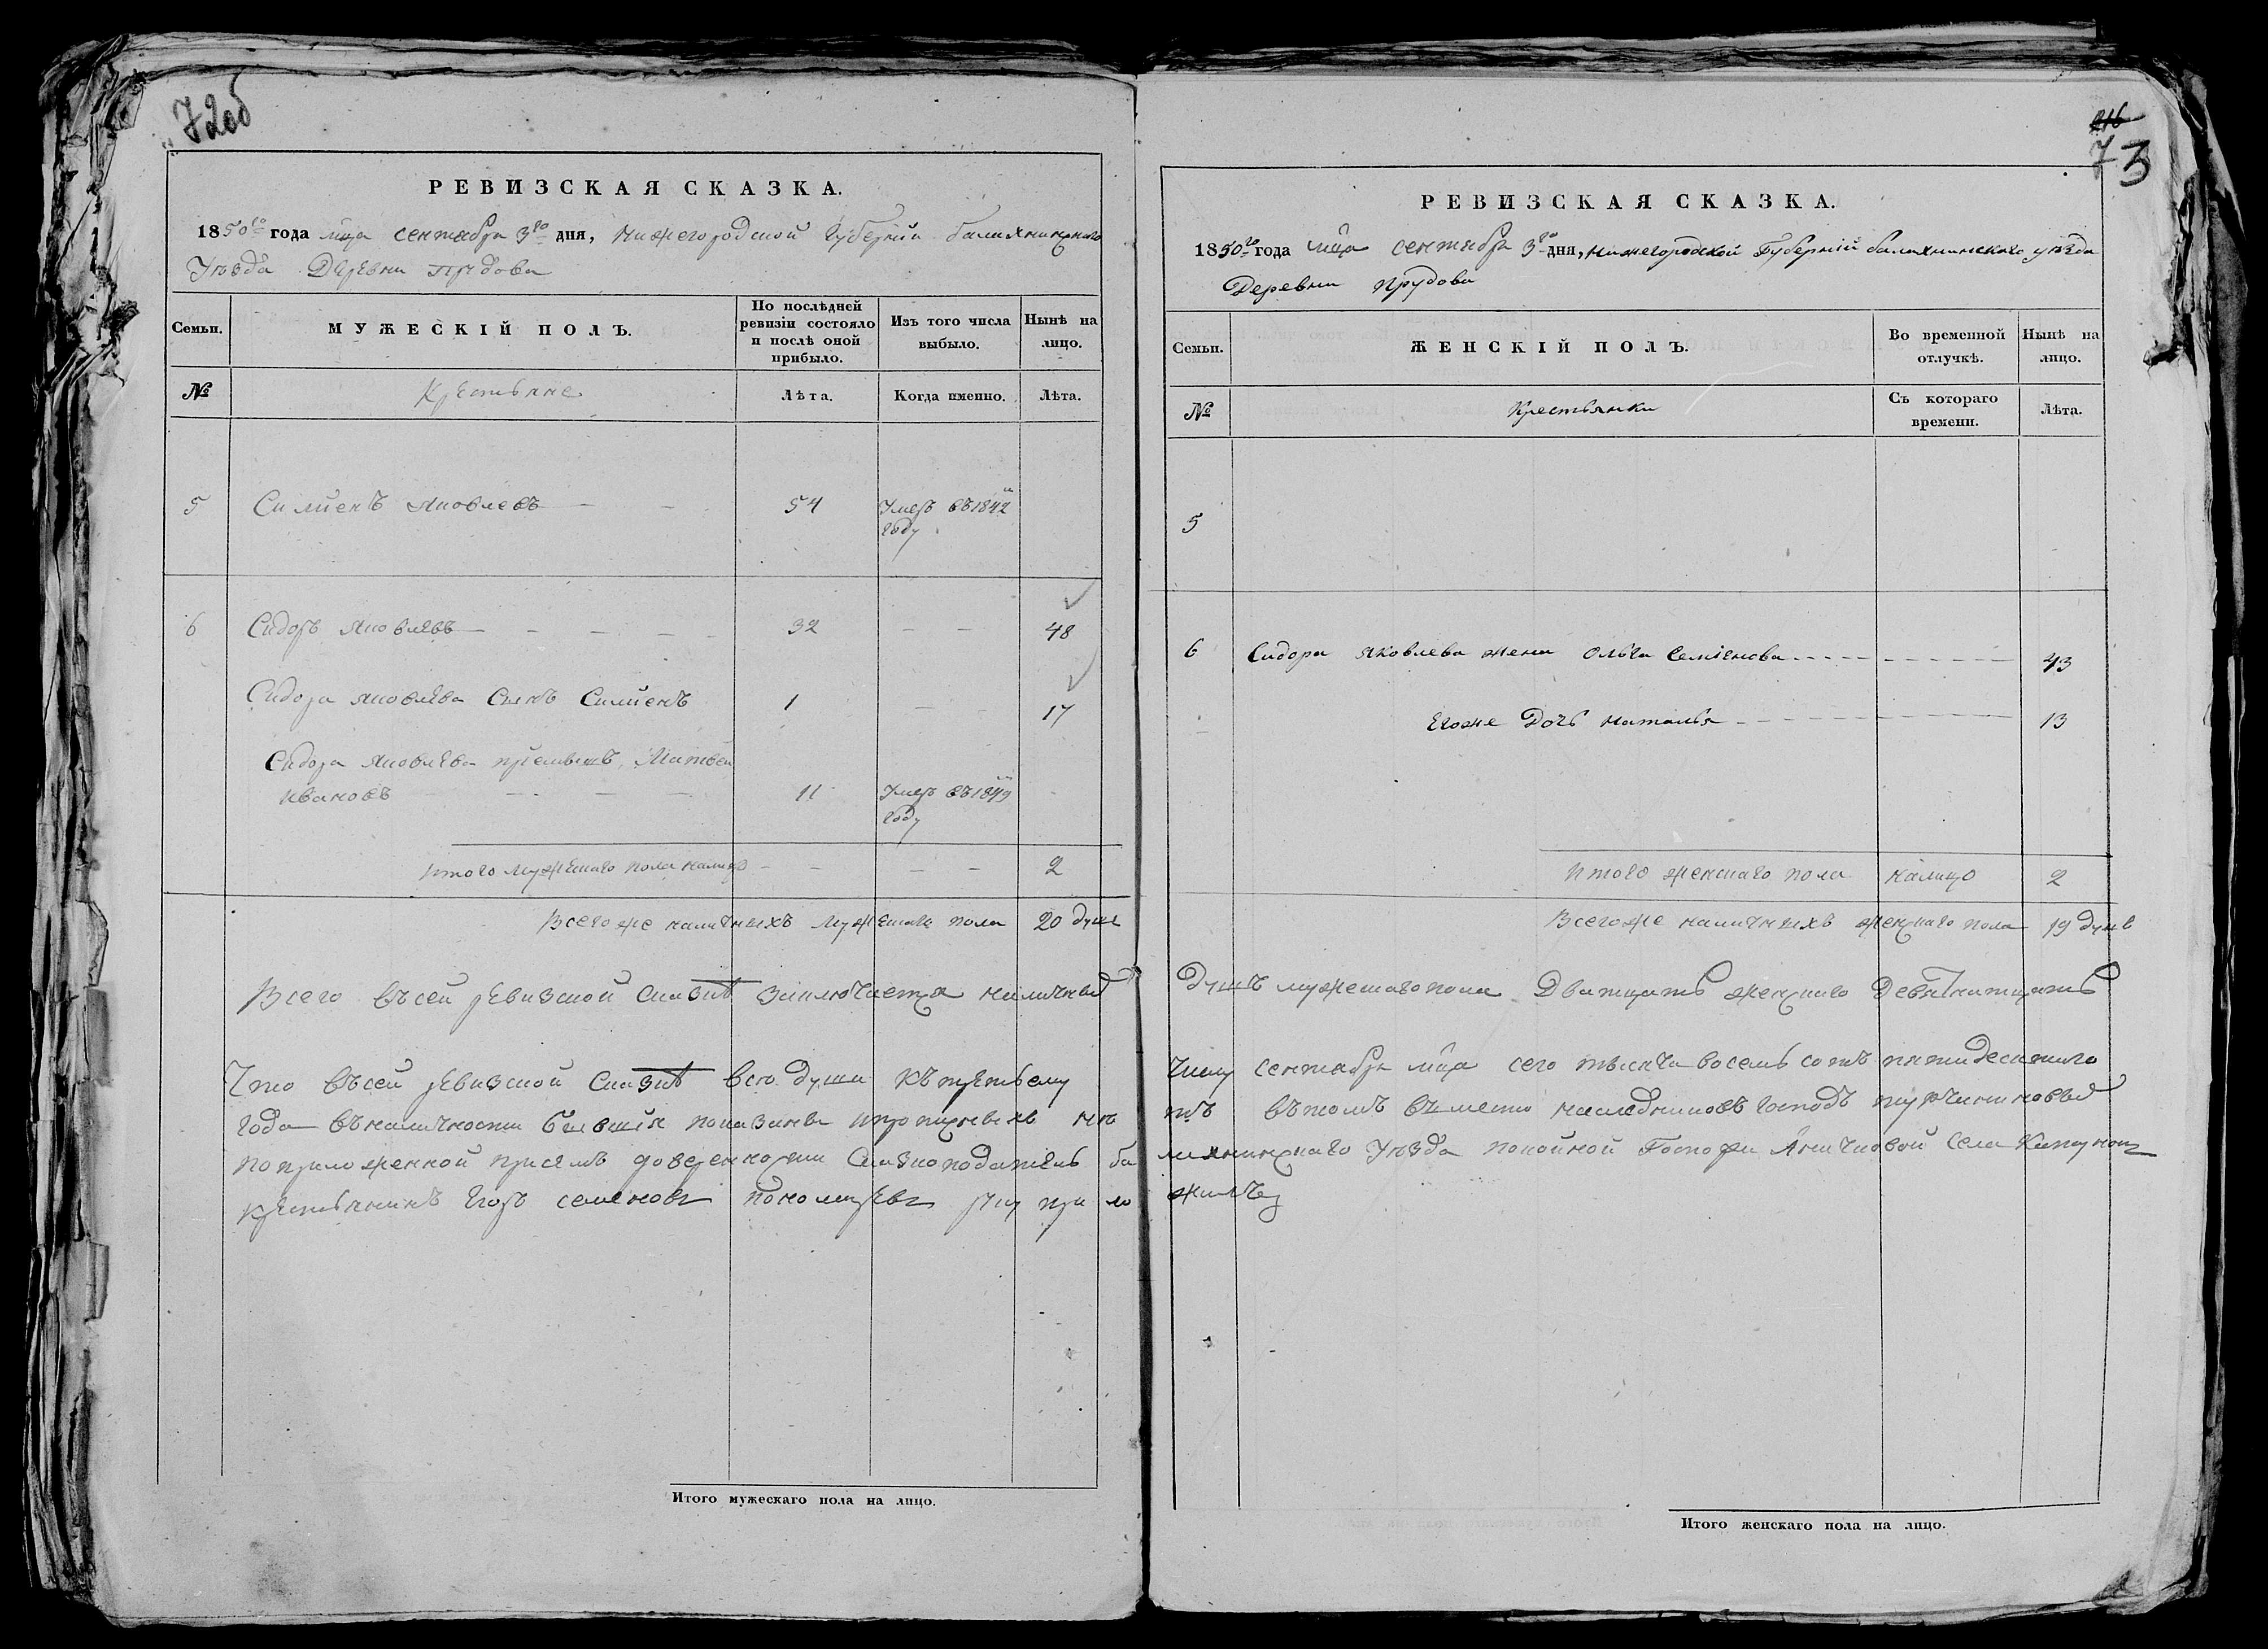 72об
РЕВИЗСКАЯ СКАЗКА.
1850го года мца сентября 3го дня, Нижегородской Губернiи балахнинскаго
Уѣзда Деревни прудова
Семьи.
МУЖЕСКIЙ ПОЛЪ.
По послѣдней ревизiи состояло и послѣ оной прибыло.
Изъ того числа выбыло.
Нынѣ на лицо.
№
Крестьяне
Лѣта.
Когда именно.
Лѣта.
5 Силиенъ Яковлевъ 54 Умеръ въ 1842
году
6 Сидоръ Яковлевъ 32 48
Сидора Яковлева Сынъ Силиенъ 1 17
Сидора Яковлева прiемышъ, Матвей
Ивановъ 11 Умеръ въ 1849
году
итого мужескаго пола налицо 2
Всего же наличныхъ мужескаго пола 20 душъ
Всего въсей ревизской сказкѣ заключается наличныхъ
Что въсей ревизской сказкѣ всѣ души къ третьему
года въналичности бывшiя показаны и пропущенныхъ нѣ
поприложенной присемъ доверенности Сказкоподатель ба
крестьянинъ Егоръ семеновъ пономаревъ руку при ло
Итого мужескаго пола на лицо.
216
73
РЕВИЗСКАЯ СКАЗКА.
1850го года мца сентября 3го дня, нижегородской Губернiй балахнинскаго уѣзда
Деревни прудова
Семьи.
ЖЕНСКIЙ ПОЛЪ.
Во временной отлучкѣ.
Нынѣ на лицо.
№
Крестьянки
Съ котораго времени.
Лѣта.
5
6 Сидора Яковлева жена Ольга Семiенова 43
Егоже Дочь наталья 13
Итого женскаго пола налицо 2
Всегоже наличныхъ женскаго пола 19 душъ
Душъ мужескагопола Дватцать женскаго Девятнатцать
числу сентября мца сего тысяча восемь сотъ пятидесятаго
тъ въ томъ вместо наследниковъ Господъ
лахнинскаго Уѣзда покойной Госпожи Аничковой Села Катунокъ
жилъ
Итого женскаго пола на лицо.